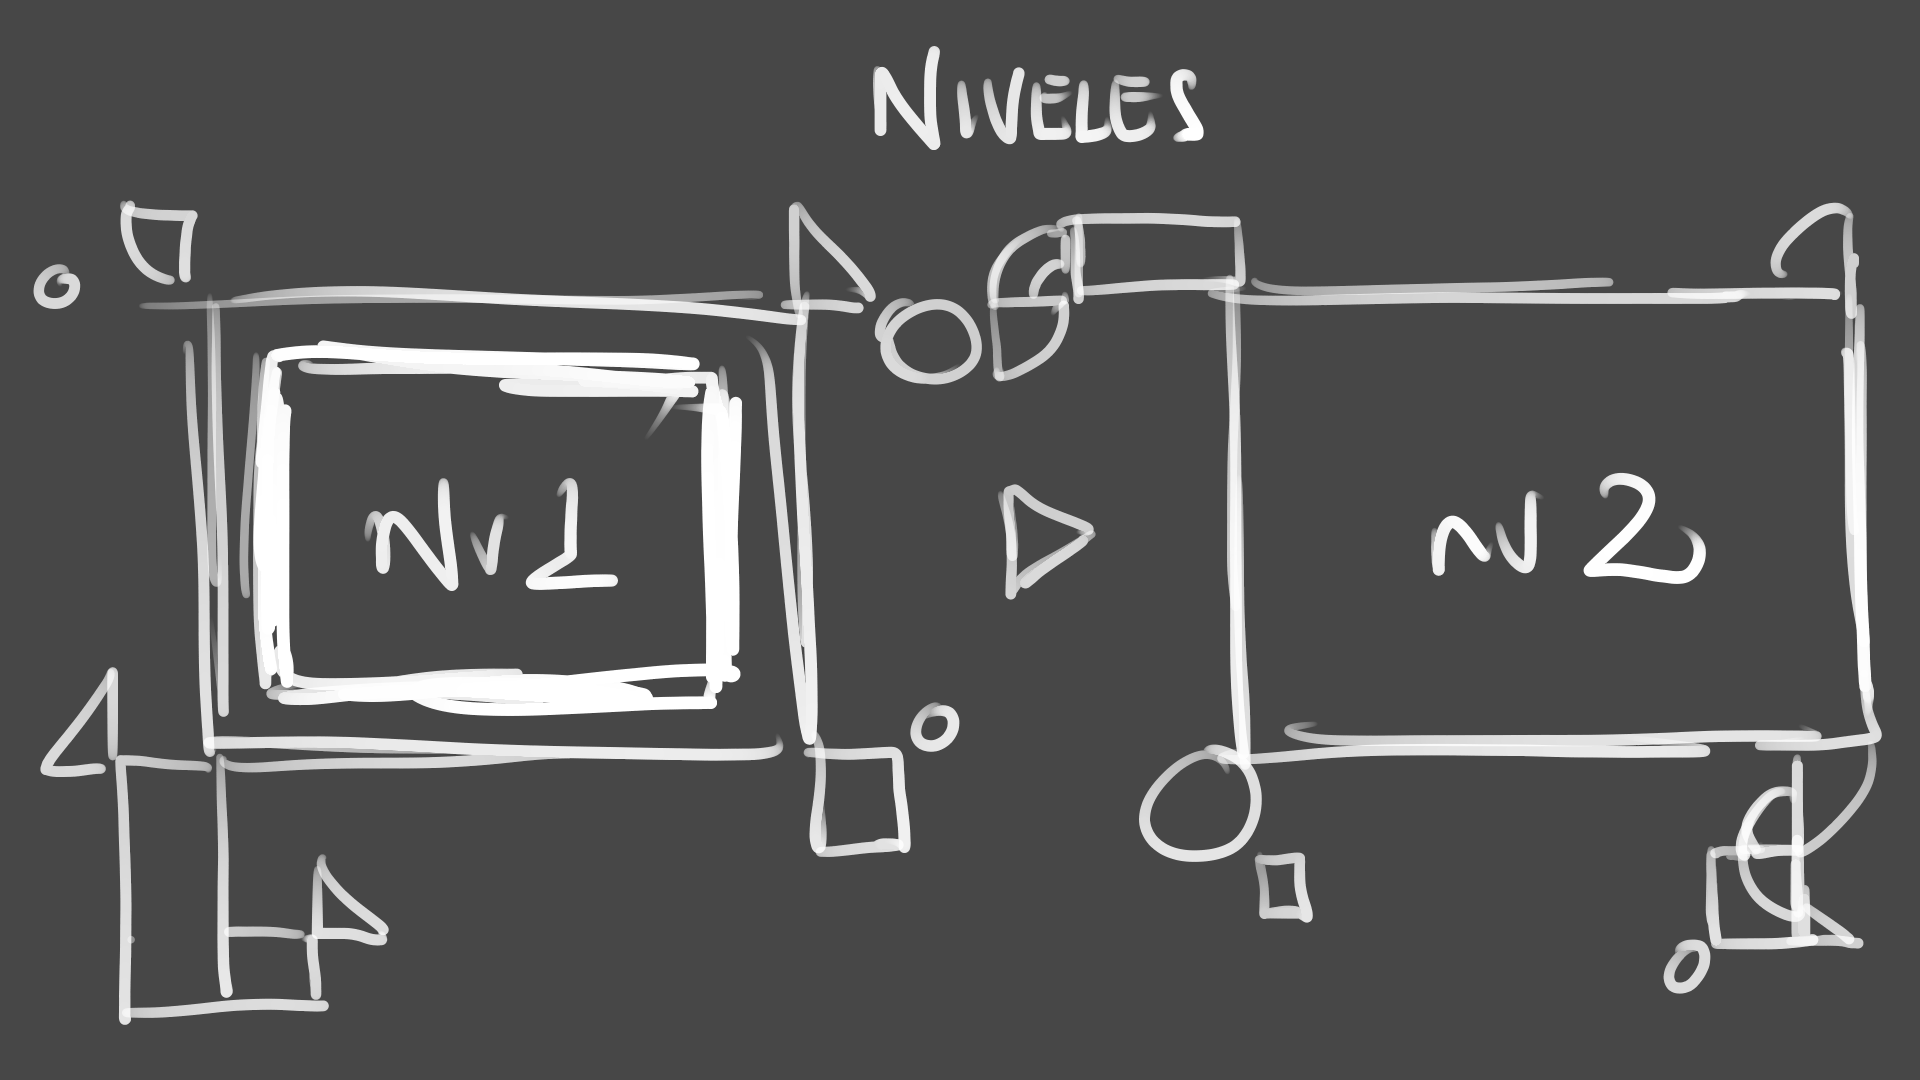 NIVELES
Nv1
nv 2